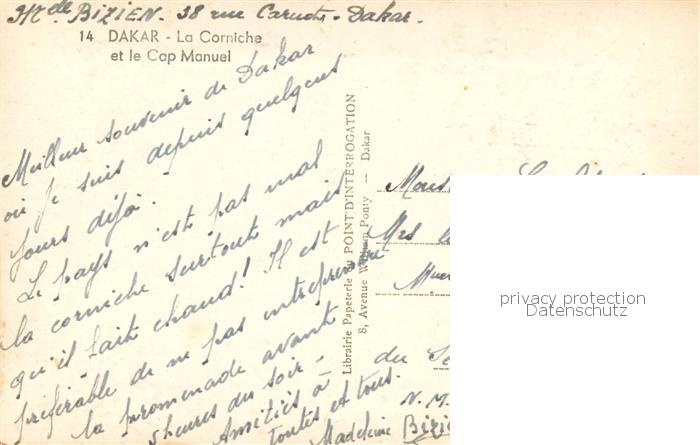 Melle BIZIEN. 38 rue Carnot - Dakar.
14 DAKAR - La Corniche
et le Cap Manuel
Meilleur souvenir de Dakar
où je suis depuis quelques
jours déjà.
Le pays n'est pas mal
la corniche surtout mais
qu'il fait chaud! Il est
préférable de ne pas entreprendre
la promenade avant
5 heures du soir -
Amitiés à
toutes et tous.
Madeleine Bizien
Librairie Papeterie du POINT D'INTERROGATION
8, Avenue William Ponty — Dakar
Mrs
du
N. M.
privacy protection
Datenschutz